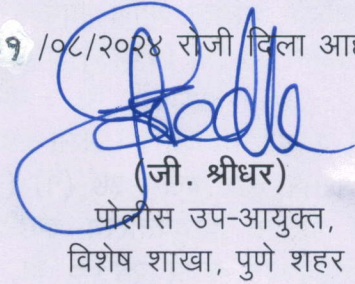 १ /०८/२०२४ रोजी दिला आहे
(जी. श्रीधर)
पोलीस उप-आयुक्त,
विशेष शाखा, पुणे शहर